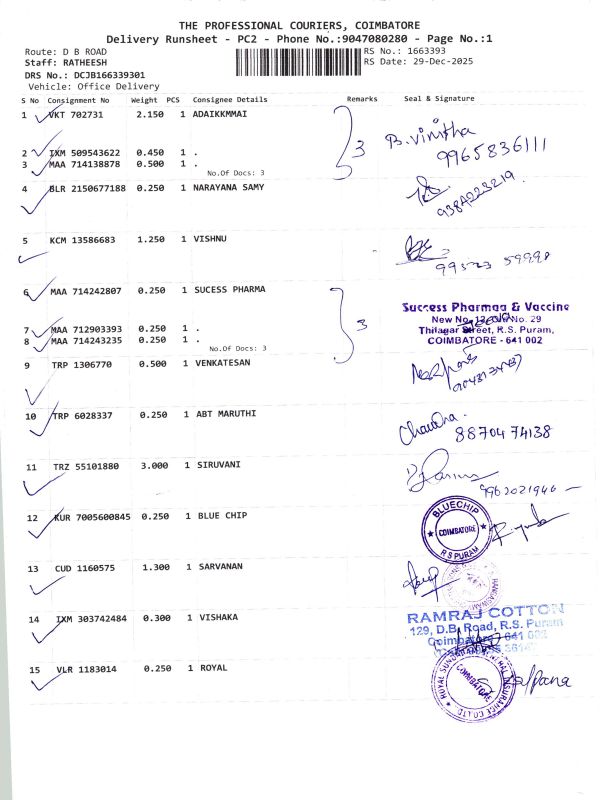 THE PROFESSIONAL COURIERS, COIMBATORE
Delivery Runsheet - PC2 - Phone No.:9047080280 - Page No.:1
Route: D B ROAD
RS No.: 1663393
Staff: RATHEESH
RS Date: 29-Dec-2025
DRS No.: DCJB166339301
Vehicle: Office Delivery
S No Consignment No Weight PCS Consignee Details Remarks Seal & Signature
1 VKT 702731 2.150 1 ADAIKKMMAI
B. Vinitha
3
9965836111
2 IXM 509543622 0.450 1 .
3 MAA 714138878 0.500 1 .
No.Of Docs: 3
4 BLR 2150677188 0.250 1 NARAYANA SAMY
5 KCM 13586683 1.250 1 VISHNU
6 MAA 714242807 0.250 1 SUCESS PHARMA
3
Success Pharmaa & Vaccine
No. 29
Thilagar Street, R.S. Puram,
COIMBATORE - 641 002
7 MAA 712903393 0.250 1 .
8 MAA 714243235 0.250 1 .
No.Of Docs: 3
9 TRP 1306770 0.500 1 VENKATESAN
10 TRP 6028337 0.250 1 ABT MARUTHI
8870474138
11 TRZ 55101880 3.000 1 SIRUVANI
9962021946
12 KUR 7005600845 0.250 1 BLUE CHIP
BLUECHIP
COIMBATORE
R S PURAM
13 CUD 1160575 1.300 1 SARVANAN
14 IXM 303742484 0.300 1 VISHAKA
RAMRAJ COTTON
129, D.B. Road, R.S. Puram
Coimbatore - 641 002
15 VLR 1183014 0.250 1 ROYAL
COIMBATORE